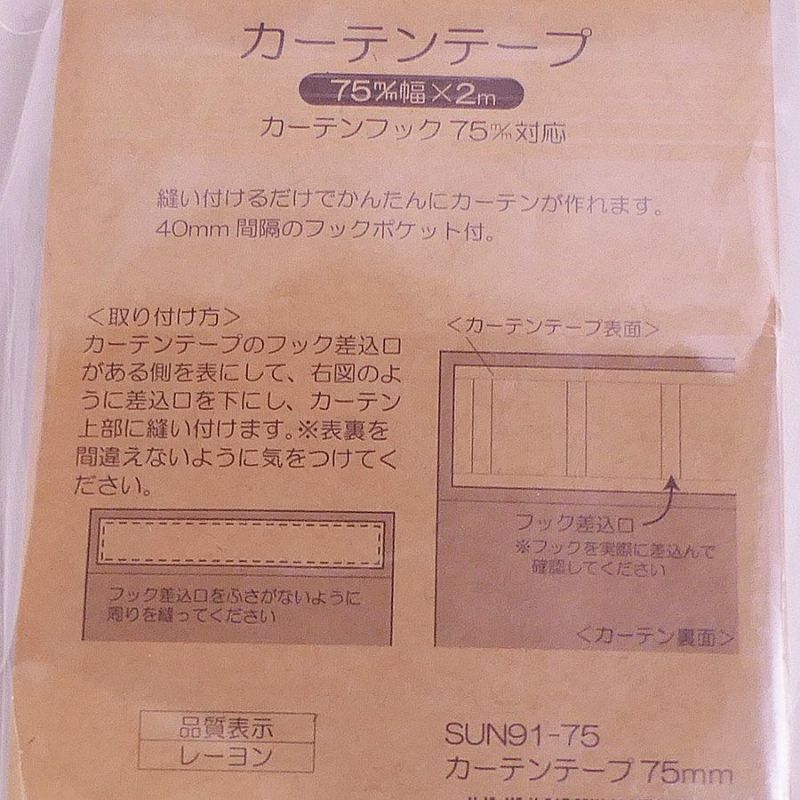 カーテンテープ
75㎜幅×2m
カーテンフック 75㎜対応
縫い付けるだけでかんたんにカーテンが作れます。
40mm 間隔のフックポケット付。
＜取り付け方＞
カーテンテープのフック差込口
がある側を表にして、右図のよ
うに差込口を下にし、カーテン
上部に縫い付けます。※表裏を
間違えないように気をつけてく
ださい。
フック差込口をふさがないように
周りを縫ってください
＜カーテンテープ表面＞
フック差込口
※フックを実際に差込んで
確認してください
＜カーテン裏面＞
品質表示
レーヨン
SUN91-75
カーテンテープ 75mm